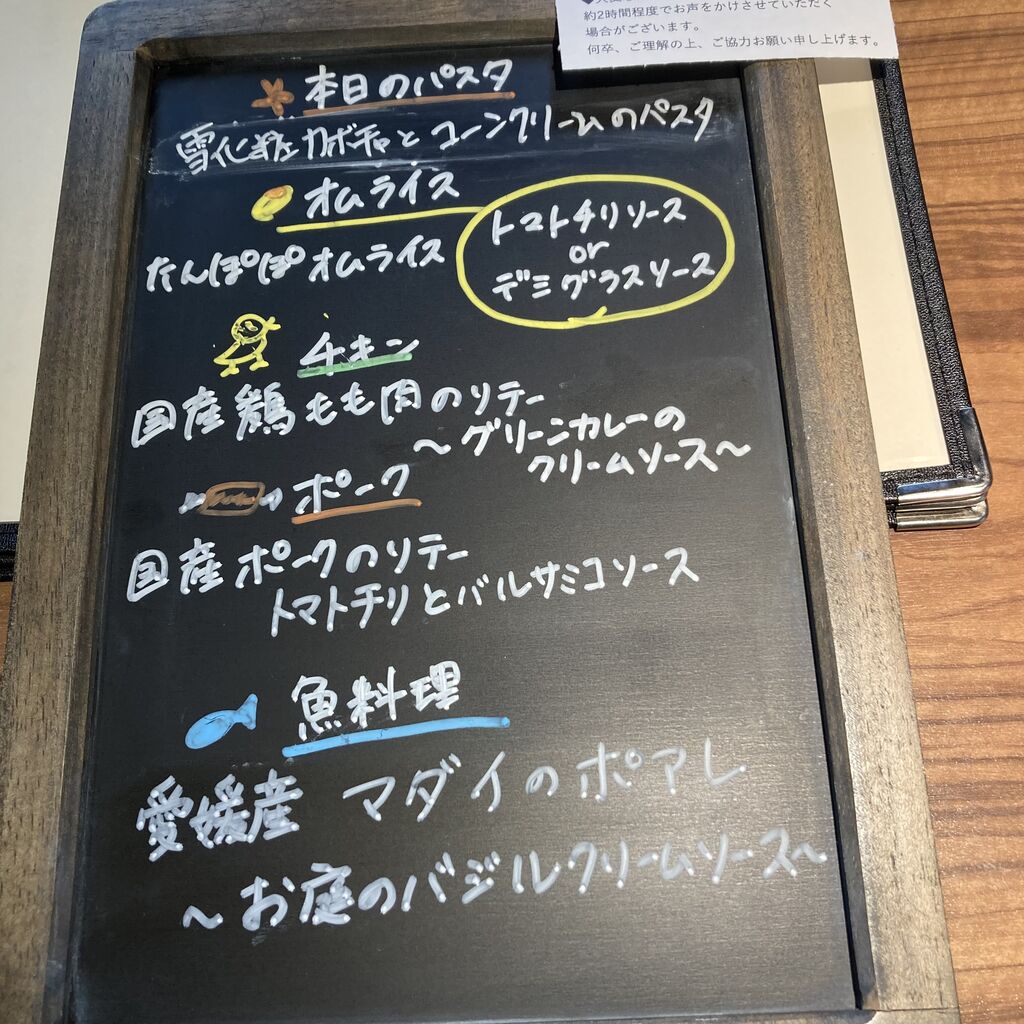 約2時間程度でお声をかけさせていただく
場合がございます。
何卒、ご理解の上、ご協力お願い申し上げます。
本日のパスタ
雪化粧カボチャとコーンクリームのパスタ
オムライス
たんぽぽオムライス
トマトチリソース
or
デミグラスソース
チキン
国産鶏もも肉のソテー
～グリーンカレーの
クリームソース～
ポーク
国産ポークのソテー
トマトチリとバルサミコソース
魚料理
愛媛産 マダイのポアレ
～お庭のバジルクリームソース～